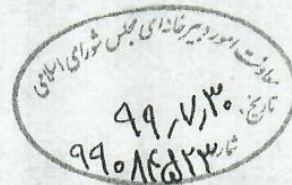 معاونت امور دبیرخانه‌ای مجلس شورای اسلامی
تاریخ: ۹۹,۷,۳۰
شماره: ۹۹۰۸۴۵۲۳